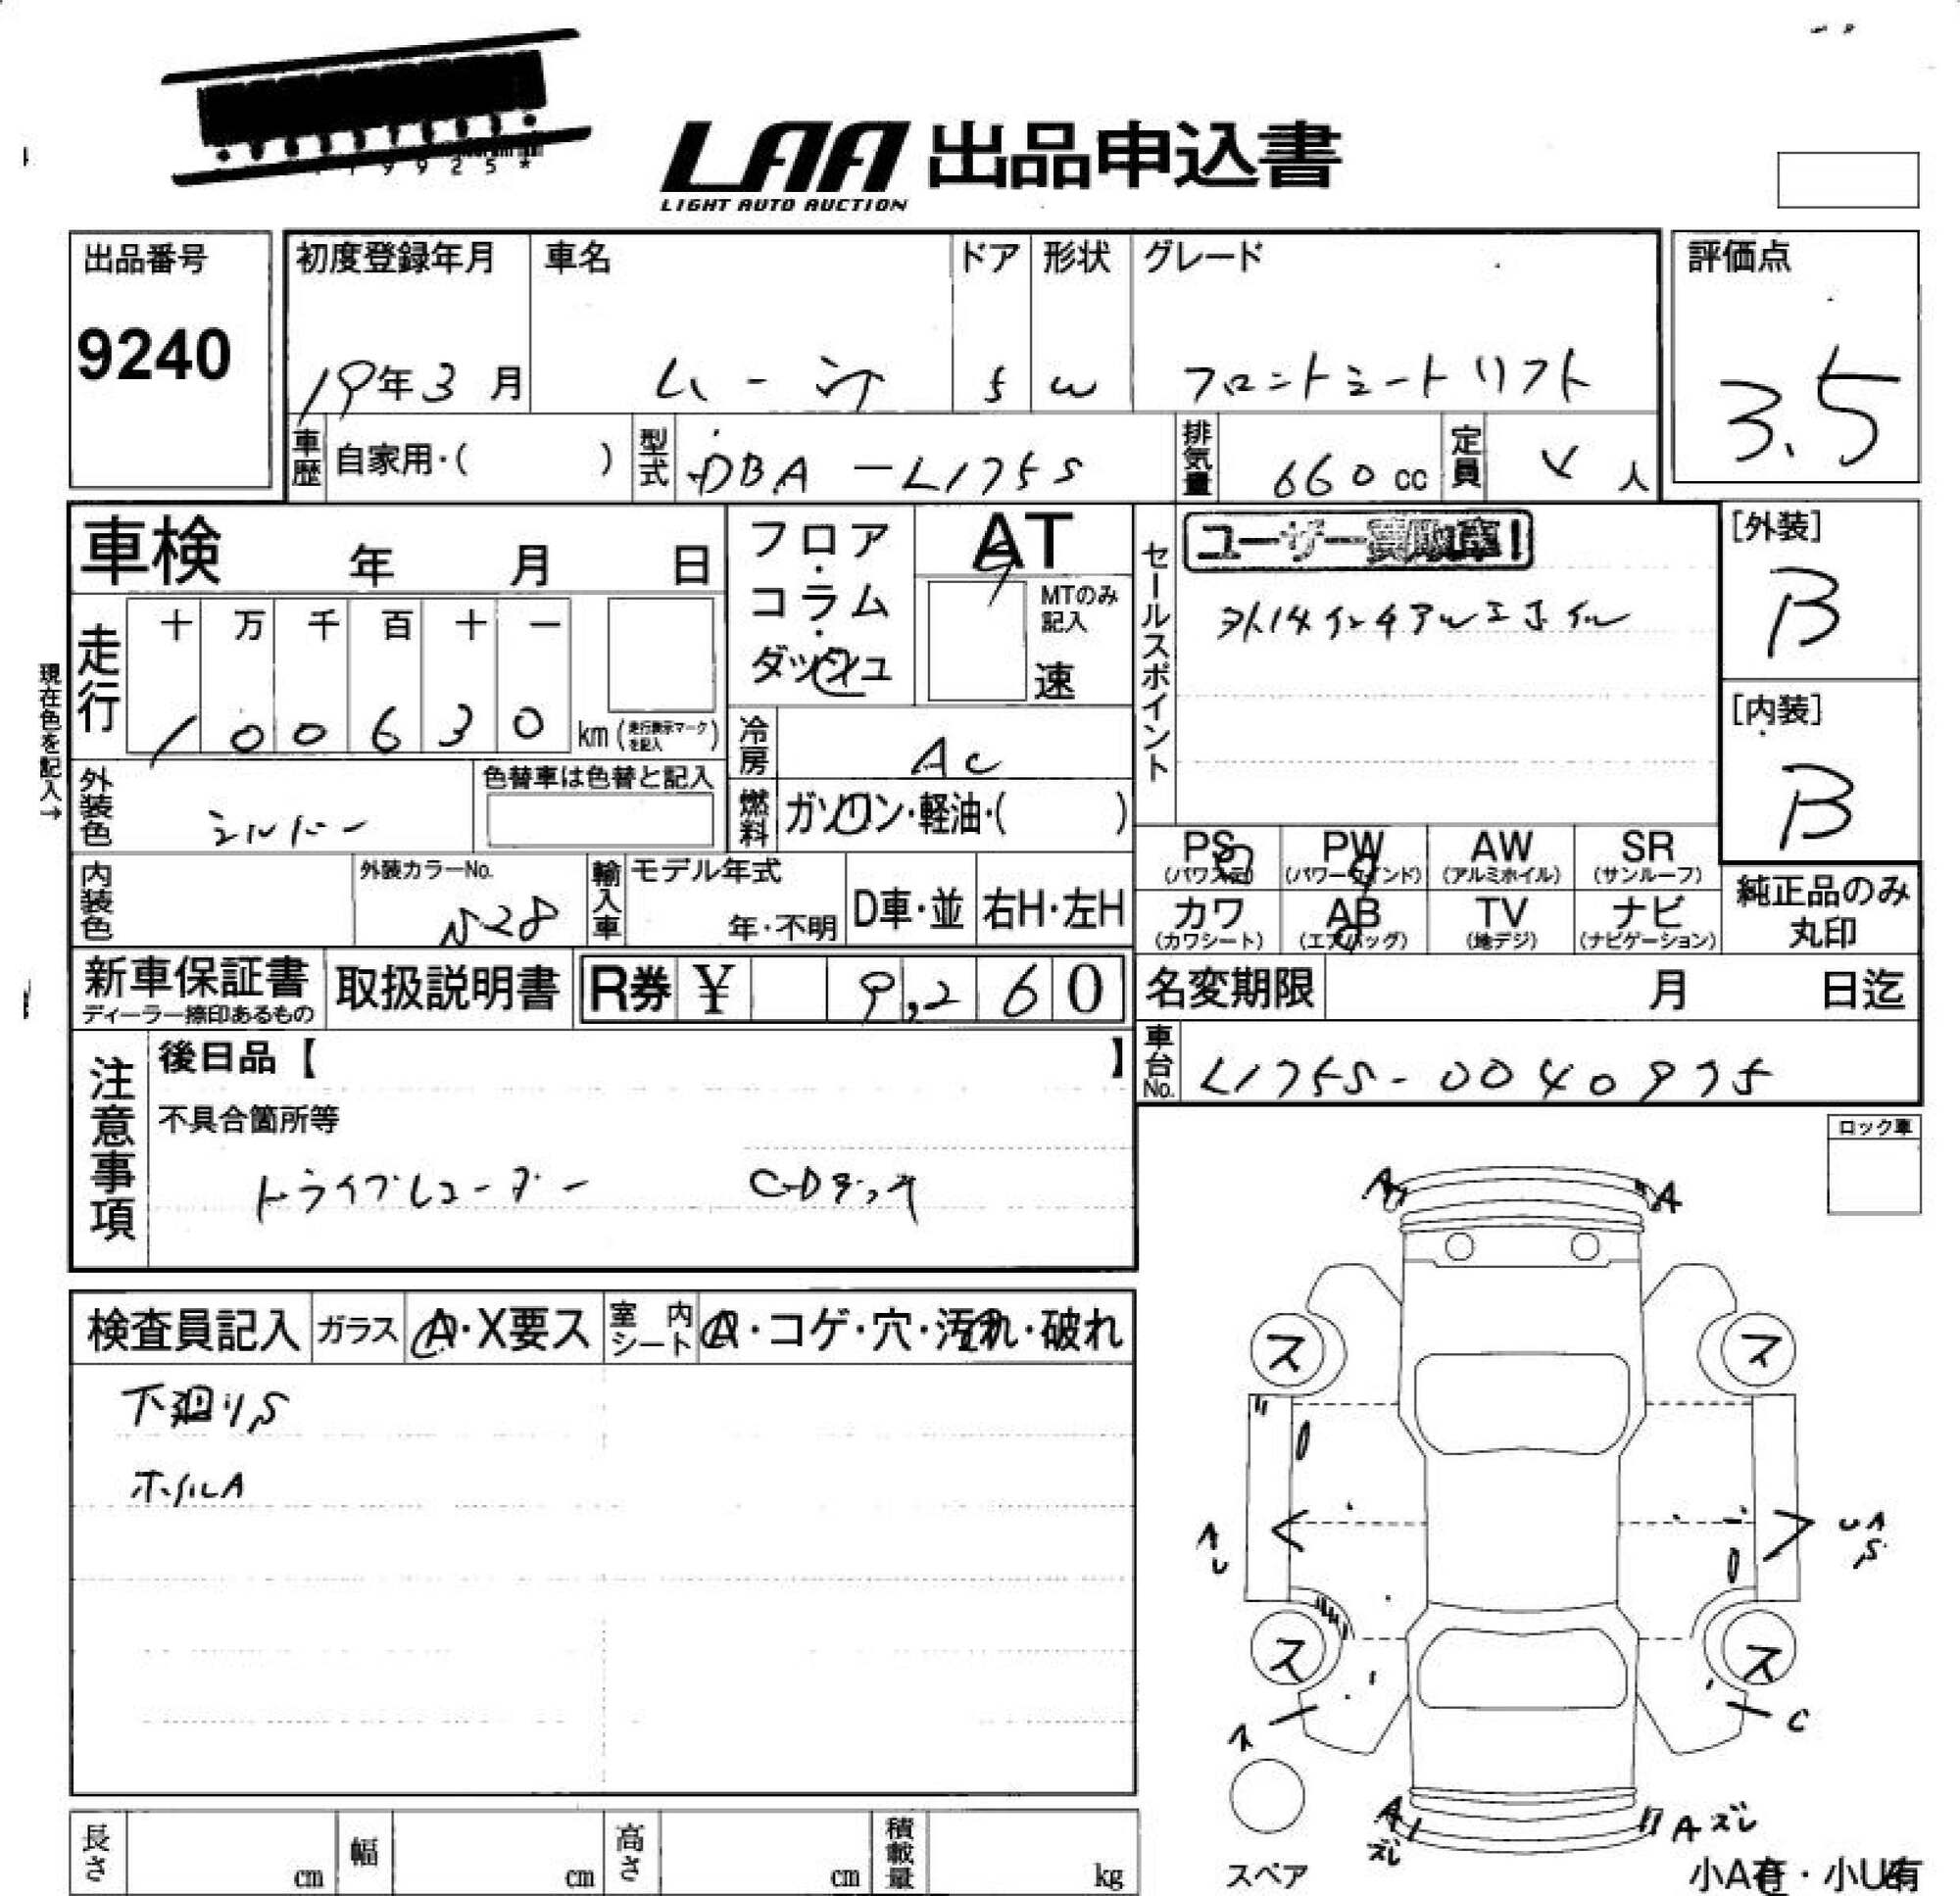 LAA 出品申込書
LIGHT AUTO AUCTION
出品番号 初度登録年月 車名 ドア 形状 グレード 評価点
9240
19年3月 ムーヴ 5 W フロントシートリフト 3.5
車歴 自家用・( ) 型式 DBA-L175S 排気量 660cc 定員 4人
車検 年 月 日 フロア・コラム・ダッシュ AT
MTのみ記入 速
セールスポイント ユーザー買取車!
社外14インチアルミホイル
[外装] B
[内装] B
現在色を記入→
走行 十 万 千 百 十 一
1 0 0 6 3 0 km (走行表示マークを記入)
冷房 AC
外装色 シルバー 色替車は色替と記入
燃料 ガソリン・軽油・( )
内装色 外装カラーNo. S28 輸入車 モデル年式 年・不明 D車・並 右H・左H
PS (パワステ) PW (パワーウインド) AW (アルミホイル) SR (サンルーフ)
カワ (カワシート) AB (エアバッグ) TV (地デジ) ナビ (ナビゲーション)
純正品のみ丸印
新車保証書 ディーラー捺印あるもの 取扱説明書 R券 ¥ 9,260
名変期限 月 日迄
車台No. L175S-0040975
注意事項 後日品【 】
不具合箇所等
ドライブレコーダー CDデッキ
ロック車
検査員記入 ガラス A・X要ス 室内シート A・コゲ・穴・汚れ・破れ
下廻りS
ホイルA
A A
ス ス
AU UAS
ス ス
A C
A ズレ A ズレ
スペア
小A有・小U有
長さ cm 幅 cm 高さ cm 積載量 kg